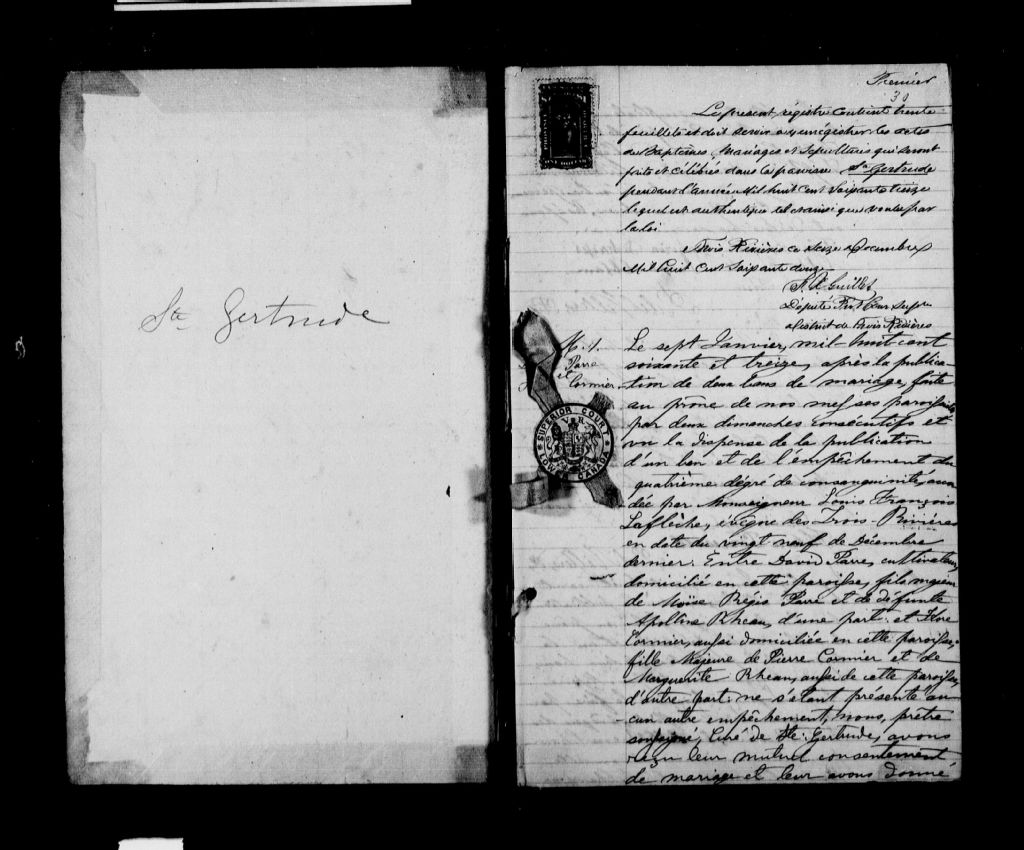 Ste Gertrude
Premier
30
Le present régistre contient trente
feuillets et doit servir a enrégistrer les actes
de Baptêmes, Mariages et Sepultures qui seront
faits et célébrés dans la paroisse Ste Gertrude
pendant l'année Mil huit cent Soixante treize
lequel est authentiqué tel et ainsi que voulu par
la loi
Trois Rivières ce Seize Décembre
Mil huit Cent Soixante douze
Guillet
Députe Prot Cour Supre
District de Trois Rivières
M. 1.
Parre
et
Cormier
SUPERIOR COURT
LOWER CANADA
V R
Le sept Janvier, mil-huit-cent
soixante et treize, après la publica-
tion de deux bans de mariage, faite
au prône de nos messes paroissiales
par deux dimanches consécutifs et
vu la dispense de la publication
d'un ban et de l'empêchement du
quatrième dégré de consanguinité, accor
dée par Monseigneur Louis François
Laflèche, évêque des Trois-Rivières
en date du vingt neuf de Décembre
dernier. Entre David Parre, cultivateur,
domicilié en cette paroisse, fils majeur
de Moïse Régis Parre et de défunte
Apolline Rheau, d'une part: et Flore
Cormier, aussi domiciliée en cette paroisse,
fille Majeure de Pierre Cormier et de
Marguerite Rheau, aussi de cette paroisse,
d'autre part: ne s'étant présenté au
cun autre empêchement, nous, prêtre
soussigné, Curé de Ste. Gertrude, avons
reçu leur mutuel consentement
de mariage et leur avons donné